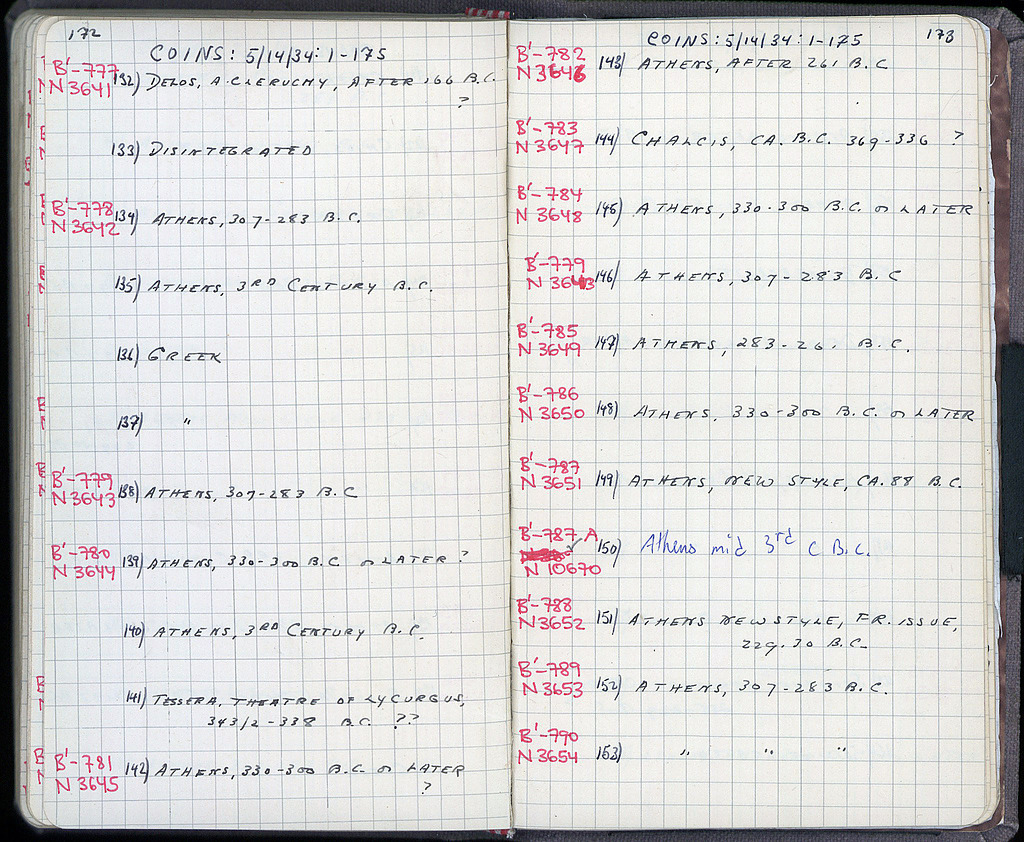 172
COINS: 5/14/34: 1-175
B'-777
N 3641
132) DELOS, A CLERUCHY, AFTER 166 B.C.
?
133) DISINTEGRATED
B'-778
N 3642
134) ATHENS, 307-283 B.C.
135) ATHENS, 3RD CENTURY B.C.
136) GREEK
137) "
B'-779
N 3643
138) ATHENS, 307-283 B.C
B'-780
N 3644
139) ATHENS, 330-300 B.C OR LATER ?
140) ATHENS, 3RD CENTURY B.C.
141) TESSERA, THEATRE OF LYCURGUS,
343/2-338 B.C. ??
B'-781
N 3645
142) ATHENS, 330-300 B.C. OR LATER
?
173
COINS: 5/14/34: 1-175
B'-782
N 3646
143) ATHENS, AFTER 261 B.C
B'-783
N 3647
144) CHALCIS, CA. B.C. 369-336 ?
B'-784
N 3648
145) ATHENS, 330-300 B.C. OR LATER
B'-779
N 3643
146) ATHENS, 307-283 B.C
B'-785
N 3649
147) ATHENS, 283-261 B.C.
B'-786
N 3650
148) ATHENS, 330-300 B.C. OR LATER
B'-787
N 3651
149) ATHENS, NEW STYLE, CA. 88 B.C.
B'-787 A
N 10670
150) Athens mid 3rd C B.C.
B'-788
N 3652
151) ATHENS NEW STYLE, FR. ISSUE,
229-30 B.C.
B'-789
N 3653
152) ATHENS, 307-283 B.C.
B'-790
N 3654
153) " " "